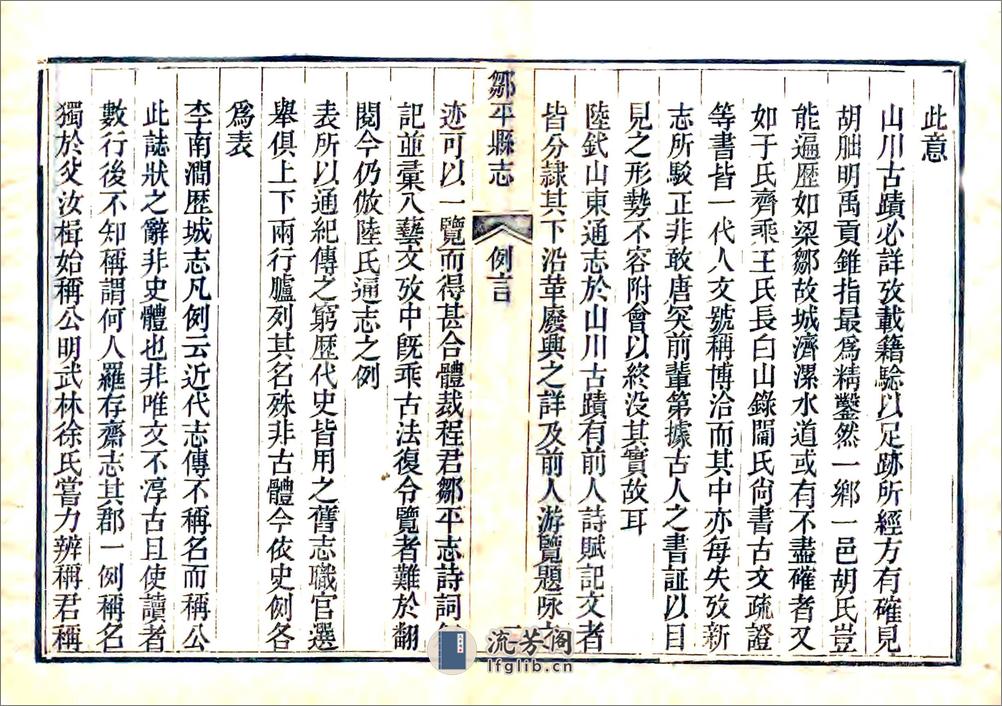 此意
山川古蹟必詳攷載籍驗以足跡所經方有確見
胡朏明禹貢錐指最爲精鑿然一鄉一邑胡氏豈
能遍歷如梁鄒故城濟漯水道或有不盡確者又
如于氏齊乘王氏長白山錄閻氏尙書古文疏證
等書皆一代人文號稱博洽而其中亦每失攷新
志所駁正非敢唐突前輩第據古人之書証以目
見之形勢不容附會以終没其實故耳
陸釴山東通志於山川古蹟有前人詩賦記文者
皆分隷其下沿革廢興之詳及前人游覽題咏
鄒平縣志
例言
迹可以一覽而得甚合體裁程君鄒平志詩詞
記並彙入藝文攷中旣乖古法復令覽者難於翻
閱今仍倣陸氏通志之例
表所以通紀傳之窮歷代史皆用之舊志職官選
舉俱上下兩行臚列其名殊非古體今依史例各
爲表
李南澗歷城志凡例云近代志傳不稱名而稱公
此誌狀之辭非史體也非唯文不淳古且使讀者
數行後不知稱謂何人羅存齋志其郡一例稱名
獨於父汝楫始稱公明武林徐氏嘗力辨稱君稱
流芳阁
lfglib.cn